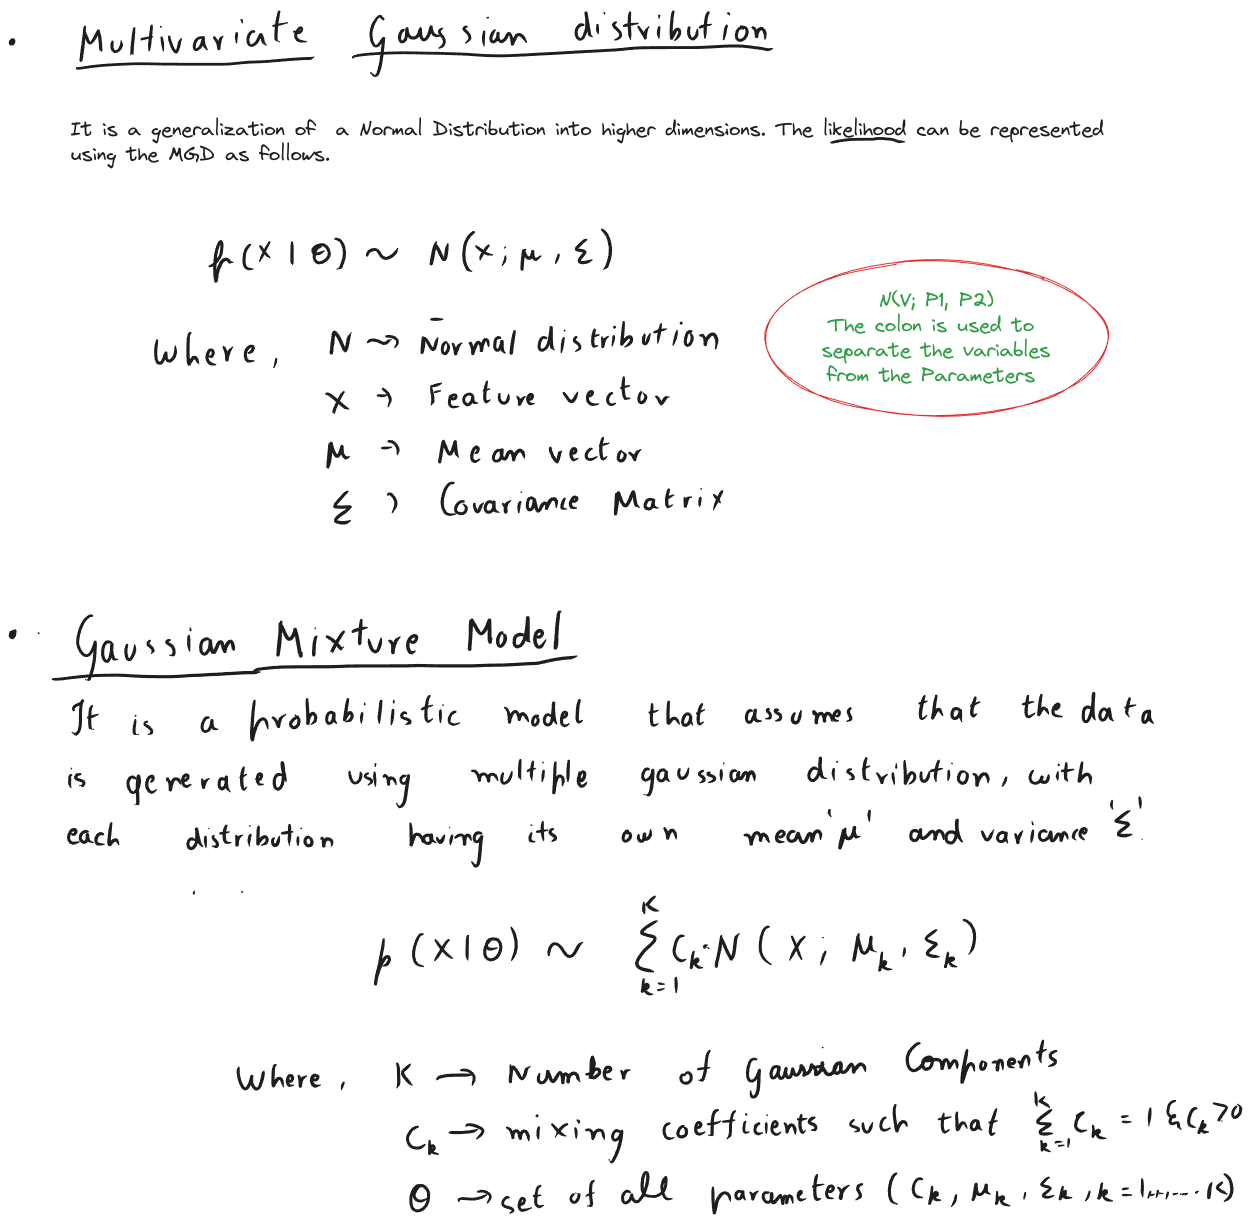 • Multivariate Gaussian distribution
It is a generalization of a Normal Distribution into higher dimensions. The likelihood can be represented
using the MGD as follows.
p(x | θ) ~ N(x; μ, Σ)
N(V; P1, P2)
The colon is used to
separate the variables
from the Parameters
where, N → Normal distribution
x → Feature vector
μ → Mean vector
Σ → Covariance Matrix
• Gaussian Mixture Model
It is a probabilistic model that assumes that the data
is generated using multiple gaussian distribution, with
each distribution having its own mean 'μ' and variance 'Σ'.
p(x|θ) ~ Σ_{k=1}^{K} C_k · N(x; μ_k, Σ_k)
Where, K → Number of Gaussian Components
C_k → mixing coefficients such that Σ_{k=1}^{K} C_k = 1 & C_k > 0
θ → set of all parameters (C_k, μ_k, Σ_k, k = 1,....... K)